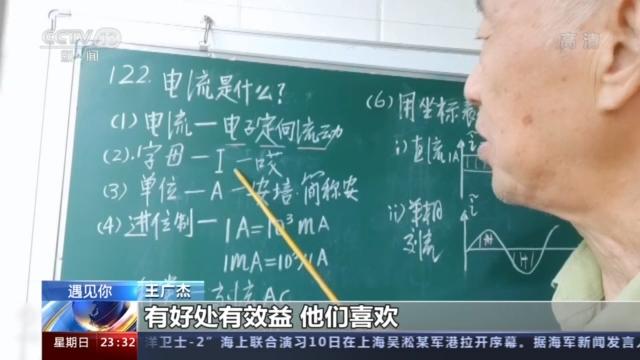 CCTV 13
新闻
高清
122. 电流是什么?
(1) 电流一电子定向流动
(2). 字母一I一哎
(3) 单位一A一安培·简称安
(4) 进位制一 1A=10³mA
1mA=10³
(6) 用坐标表
i) 直流 1A
i
ii) 单相
交流
i
交流 AC
遇见你
王广杰
有好处有效益 他们喜欢
星期日 23:32 洋卫士-2”海上联合演习10日在上海吴淞某军港拉开序幕。据海军新闻发言人